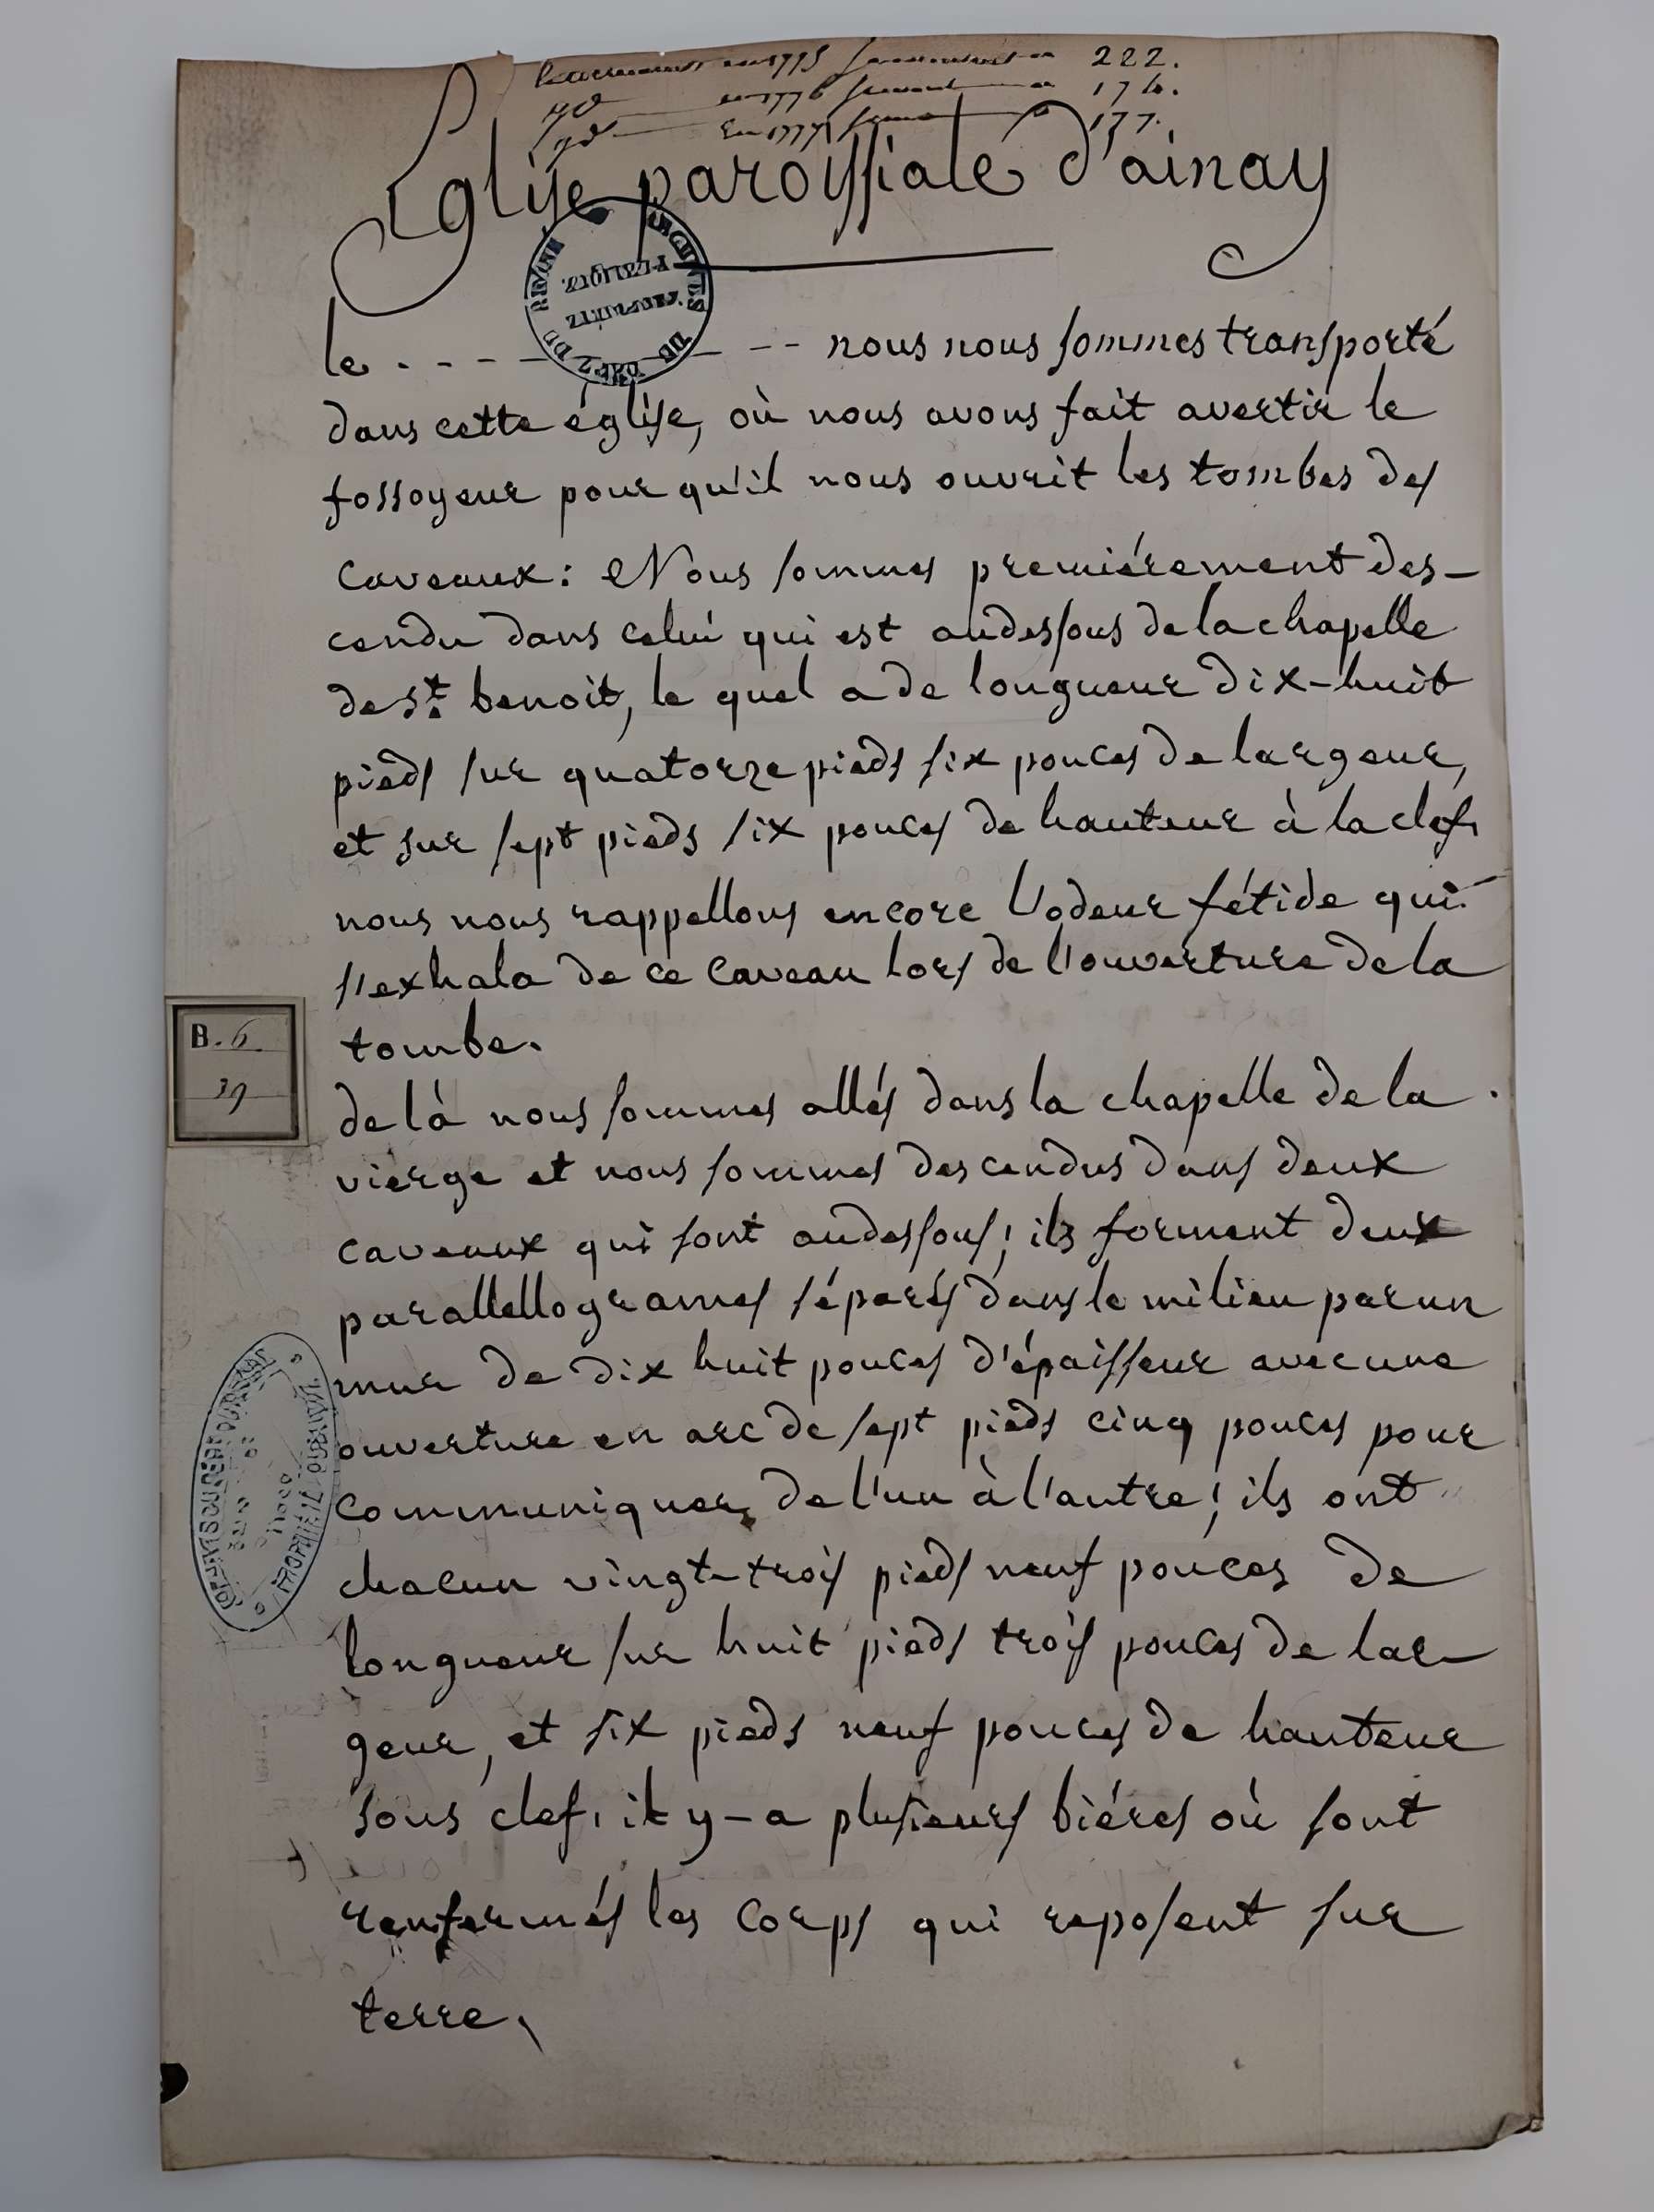 en 1775 222.
en 1776 174.
En 1777 177.
Eglise paroissiale d'ainay
le . - - - - - - nous nous sommes transporté
dans cette église, où nous avons fait avertir le
fossoyeur pour qu'il nous ouvrit les tombes des
caveaux : Nous sommes premiérement des-
cendu dans celui qui est audessous de la chapelle
de st. benoit, le quel a de longueur dix-huit
pieds sur quatorze pieds six pouces de largeur,
et sur sept pieds six pouces de hauteur à la clef.
nous nous rappellons encore l'odeur fétide qui
s'exhala de ce caveau lors de l'ouverture de la
tombe.
B. 6
39
de là nous sommes allés dans la chapelle de la
vierge et nous sommes descendus dans deux
caveaux qui sont audessous ; ils forment deux
parallellogrames séparés dans le milieu par un
mur de dix huit pouces d'épaisseur avec une
ouverture en arc de sept pieds cinq pouces pour
communiquer de l'un à l'autre ; ils ont
chacun vingt-trois pieds neuf pouces de
longueur sur huit pieds trois pouces de lar-
geur, et six pieds neuf pouces de hauteur
sous clef. il y-a plusieurs biéres où sont
renfermés les corps qui reposent sur
terre.